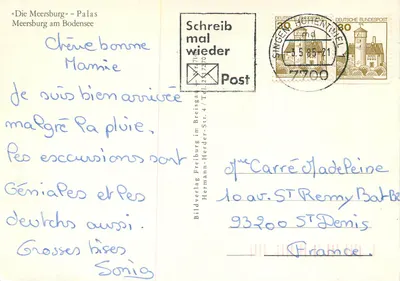 «Die Meersburg» - Palas
Meersburg am Bodensee
Chère bonne
Mamie
Je suis bien arrivée
malgré la pluie.
Les excursions sont
Géniales et les
deutchs aussi.
Grosses bises
Sonia
Schreib
mal
wieder
Post
SINGEN HOHENTWIEL 1
md
.5.85-21
7700
DEUTSCHE BUNDESPOST
80
Bildverlag Freiburg im Breisgau
Hermann-Herder-Str. 4
Mme Carré Madeleine
10 av. ST Remy Bat
93200 ST Denis
France.